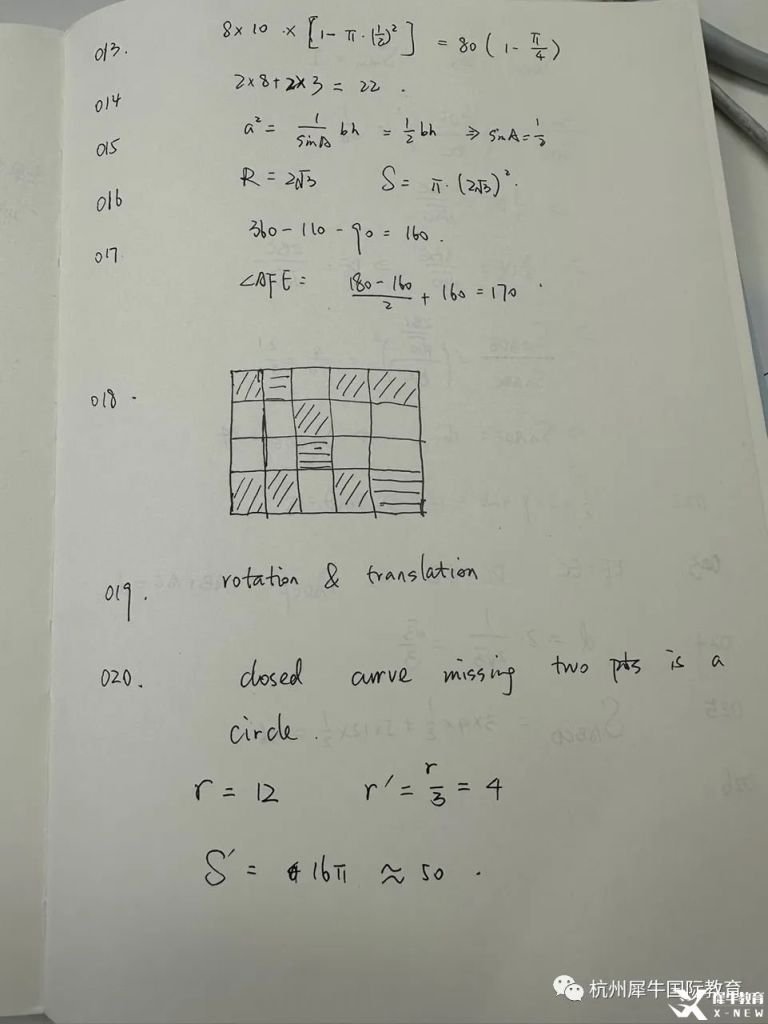 013. 8×10 × [1 - π·(1/2)²] = 80 (1 - π/4)
014 2×8+2×3 = 22 .
015 a² = 1/sinA bh = 1/2 bh ⇒ sinA = 1/2
016 R = 2√3 S = π·(2√3)².
017. 360-110-90 = 160.
∠AFE = (180-160)/2 + 160 = 170 .
018.
019. rotation & translation
020. closed curve missing two pts is a
circle.
r = 12 r' = r/3 = 4
S' = 16π ≈ 50 .
杭州犀牛国际教育
犀牛教育
X-NEW